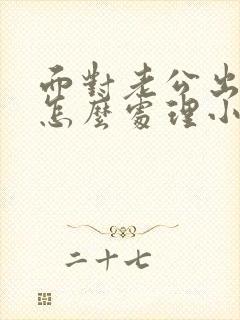 面對老公出
怎麼處理小
二十七